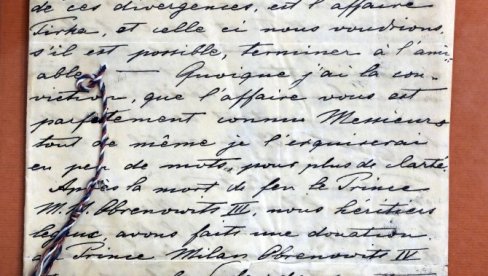 de ces divergences, est l'affaire
Tirka, et celle ci nous voudrions,
s'il est possible, terminer à l'ami-
able. — Quoique j'ai la con-
viction, que l'affaire vous est
parfaitement connue Messieurs
tout de même je l'esquiserai
en peu de mots, pour plus de clarté.
Après la mort de feu le Prince
M. M. Obrenowits III, nous héritiers
legaux avons faits une donation
à Prince Milan Obrenowits IV